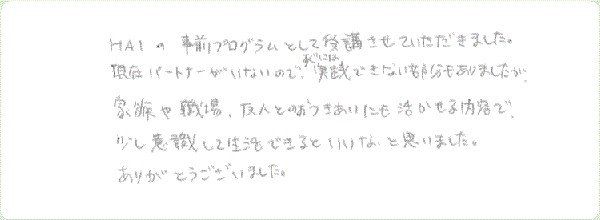 HAIの事前プログラムとして受講させていただきました。
現在パートナーがいないので、すぐには実践できない部分もありましたが、
家族や職場、友人とのおつきあいにも活かせる内容で、
少し意識して生活できるといいなと思いました。
ありがとうございました。